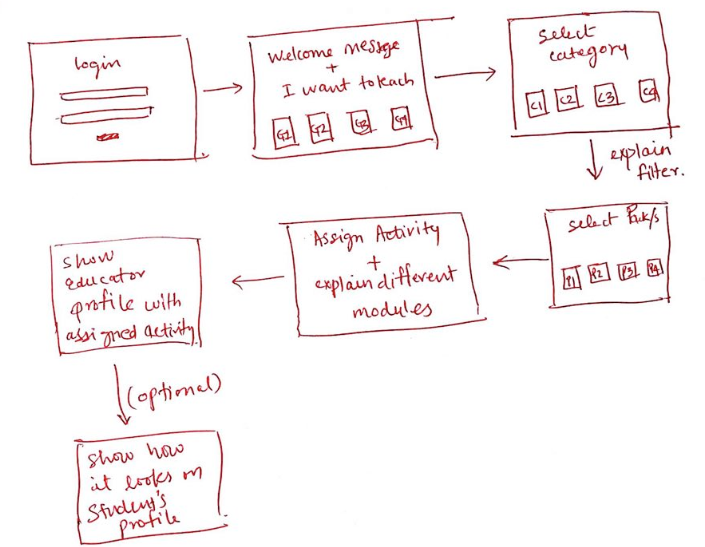 login
Welcome message
+
I want to teach
G1 G2 G3 G4
select
category
C1 C2 C3 C4
explain
filter.
select Pack/s
P1 P2 P3 P4
Assign Activity
+
explain different
modules
show
educator
profile with
assigned activity
(optional)
show how
it looks on
Student's
profile